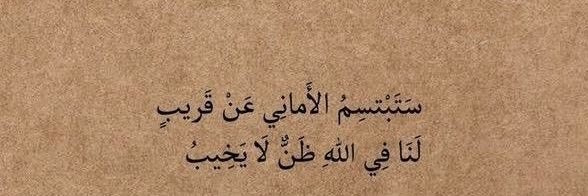 سَتَبْتسِمُ الأَمانِي عَنْ قَريبٍ
لَنَا فِي اللهِ ظَنٌّ لَا يَخِيبُ